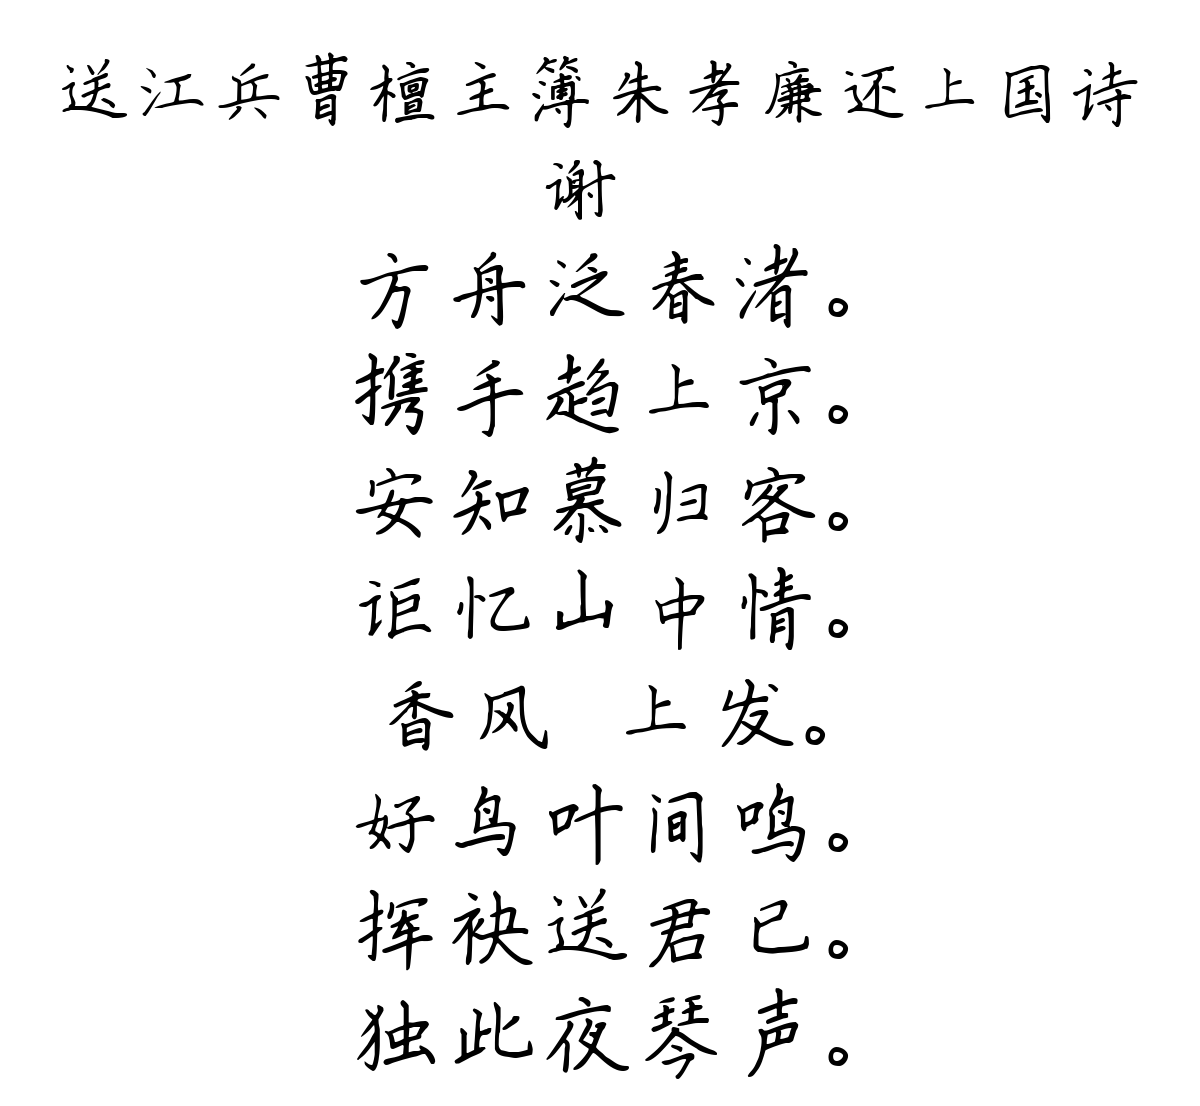 送江兵曹檀主簿朱孝廉还上国诗
谢
方舟泛春渚。
携手趋上京。
安知慕归客。
讵忆山中情。
香风 上发。
好鸟叶间鸣。
挥袂送君已。
独此夜琴声。